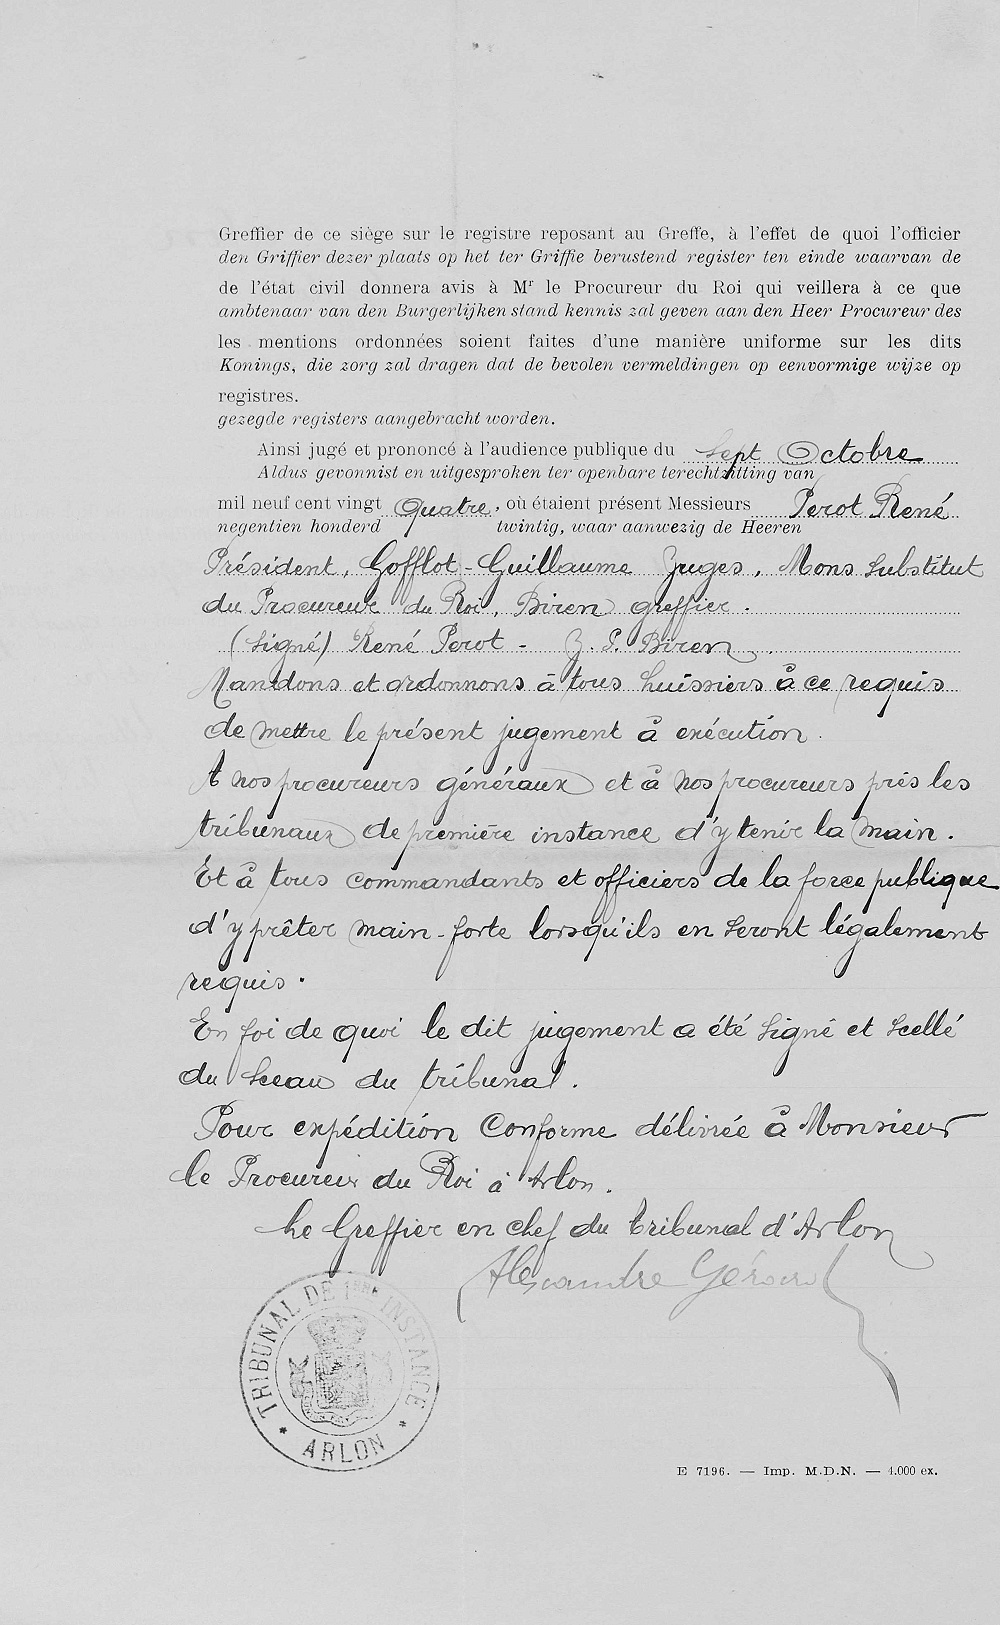 Greffier de ce siège sur le registre reposant au Greffe, à l'effet de quoi l'officier
den Griffier dezer plaats op het ter Griffie berustend register ten einde waarvan de
de l'état civil donnera avis à Mr le Procureur du Roi qui veillera à ce que
ambtenaar van den Burgerlijken stand kennis zal geven aan den Heer Procureur des
les mentions ordonnées soient faites d'une manière uniforme sur les dits
Konings, die zorg zal dragen dat de bevolen vermeldingen op eenvormige wijze op
registres.
gezegde registers aangebracht worden.
Ainsi jugé et prononcé à l'audience publique du Sept Octobre
Aldus gevonnist en uitgesproken ter openbare terechtzitting van
mil neuf cent vingt quatre, où étaient présent Messieurs Perot René
negentien honderd twintig, waar aanwezig de Heeren
Président, Gofflot-Guillaume Juges, Mons Substitut
du Procureur du Roi, Biren greffier.
(Signé) René Perot - J. P. Biren.
Mandons et ordonnons à tous huissiers à ce requis
de mettre le présent jugement à exécution.
A nos procureurs généraux et à nos procureurs près les
tribunaux de première instance d'y tenir la main.
Et à tous commandants et officiers de la force publique
d'y prêter main-forte lorsqu'ils en seront légalement
requis.
En foi de quoi le dit jugement a été signé et scellé
du sceau du tribunal.
Pour expédition conforme délivrée à Monsieur
le Procureur du Roi à Arlon.
Le Greffier en chef du tribunal d'Arlon
Alexandre Gérard
TRIBUNAL DE 1ERE INSTANCE
* ARLON *
E 7196. — Imp. M.D.N. — 4.000 ex.